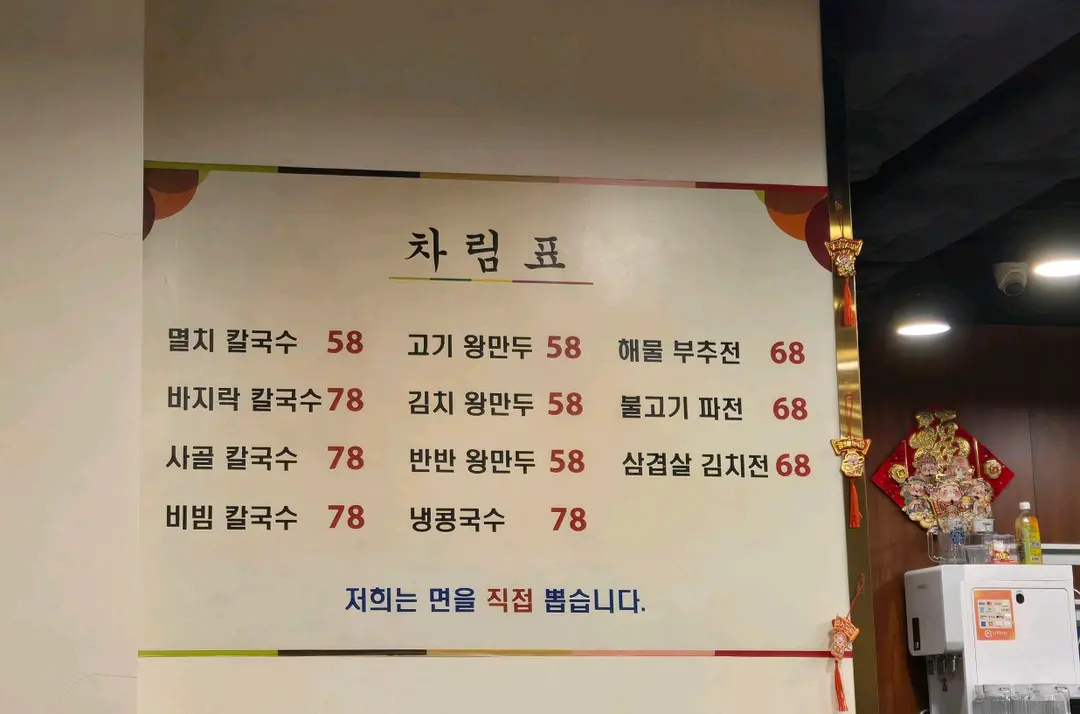 차림표
멸치 칼국수 58
바지락 칼국수 78
사골 칼국수 78
비빔 칼국수 78
고기 왕만두 58
김치 왕만두 58
반반 왕만두 58
냉콩국수 78
해물 부추전 68
불고기 파전 68
삼겹살 김치전 68
저희는 면을 직접 뽑습니다.